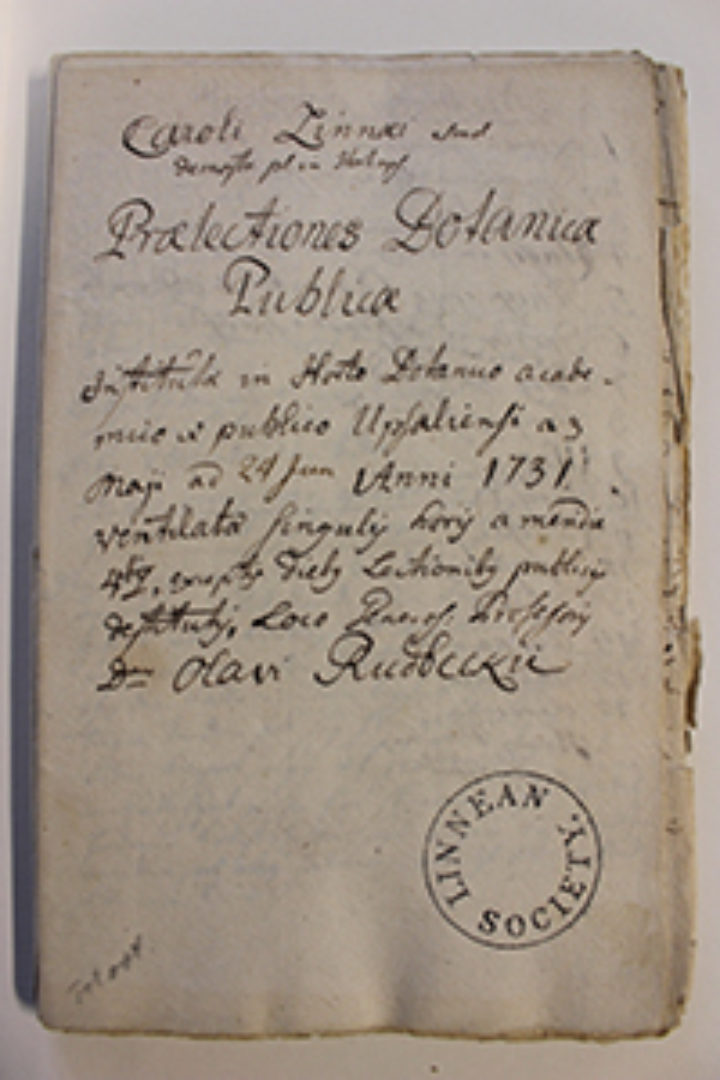 Caroli Linnæi
Prælectiones Botanicæ
Publicæ
Institutæ in Horto Botanico acade-
mico & publico Upsaliensi a 3
Maji ad 24 Jun Anni 1731.
ventilatæ singulis horis a meridie
Lectionibus publicis
destitutis, Loco Generos. Professoris
Dn Olavi Rudbeckii
LINNEAN SOCIETY.